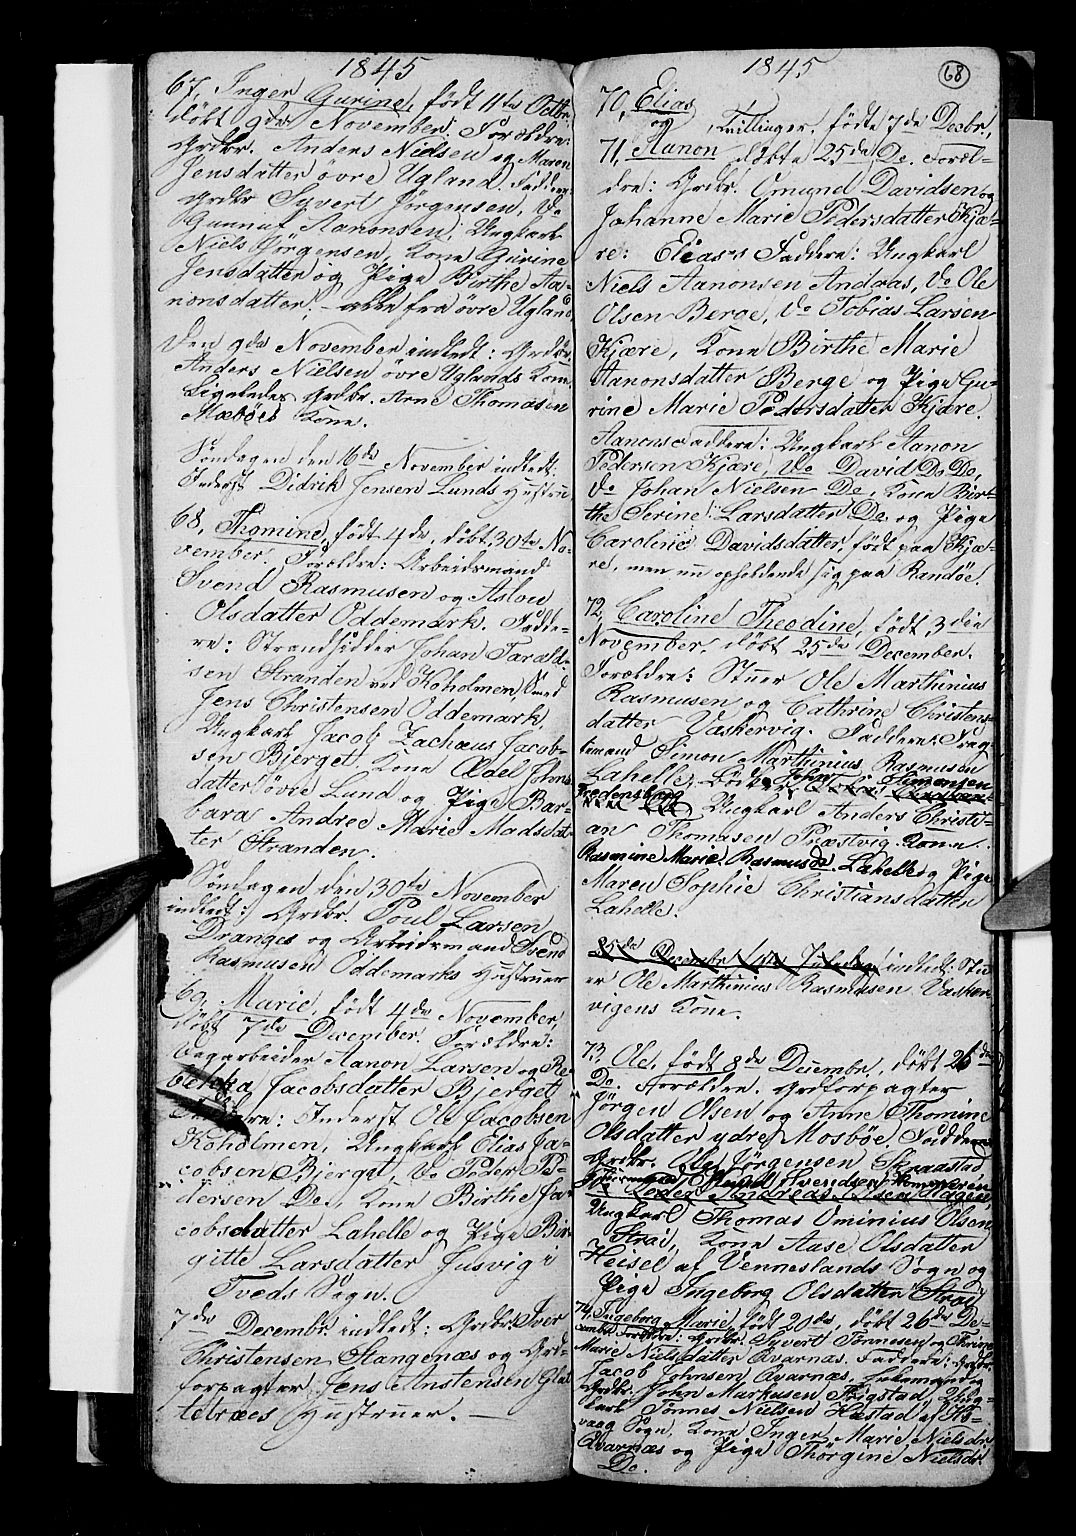 1845
67, Inger Gurine, født 11te Octbr,
døbt 9de November. Forældre:
Grdbr. Anders Nielsen og Maren
Jensdatter øvre Ugland. Faddere:
Grdbr Syvert Jørgensen, Do
Gunnuf Aanonsen, Ungkarl
Niels Jørgensen, Kone Gurine
Jensdatter og Pige Birthe Aa-
nonsdatter, – alle fra øvre Ugland.
Den 9de November indledt: Grdbr.
Anders Nielsen øvre Uglands Kone,
Ligeledes Grdbr. Arne Thomasen
Mæbøes Kone.
Søndagen den 16de November indledt:
Inderst Didrik Jensen Lunds Hustru
68, Thomine, født 4de, døbt 30te No-
vember. Forældre: Arbeidsmand
Svend Rasmusen og Aslou
Olsdatter Oddemark. Fadde-
re: Strandsidder Johan Tarald-
sen Stranden ved Koholmen, Smed
Jens Christensen Oddemark,
Ungkarl Jacob Zachæus Jacob-
sen Bjerget, Kone Ædel Johns-
datter øvre Lund og Pige Bar-
bara Andree Marie Madsdat-
ter Stranden.
Søndagen den 30te November
indledt: Grdbr. Poul Larsen
Dranges og Arbeidsmand Svend
Rasmusen Oddemarks Hustruer
69, Marie, født 4de November,
døbt 7de December. Forældre:
Vegarbeider Aanon Larsen og Re-
bekka Jacobsdatter Bjerget
Faddere: Inderst Ole Jacobsen
Koholmen, Ungkarl Elias Ja-
cobsen Bjerget, Do Peder Pe-
dersen Do, Kone Birthe Ja-
cobsdatter Lahelle og Pige Bir-
gitte Larsdatter Jusvig i
Tveds Sogn.
7de Decembr. indledt: Grdbr. Iver
Christensen Stangenæs og Grd-
forpagter Jens Anstensen Glat-
tetræes Hustruer. —
1845
68
70, Elias
og Tvillinger, fødte 7de Decbr,
71, Aanon døbte 25de Do. Foræl-
dre: Grdbr. Omund Davidsen og
Johanne Marie Pedersdatter Kjæ-
re: Elias's Faddere: Ungkarl
Niels Aanonsen Andaas, Do Ole
Olsen Berge, Do Tobias Larsen
Kjære, Kone Birthe Marie
Aanonsdatter Berge og Pige Gu-
rine Marie Pedersdatter Kjære.
Aanons Faddere: Ungkarl Aanon
Pedersen Kjære, Do David Do Do,
Do Johan Nielsen Do, Kone Bir-
the Serine Larsdatter Do og Pige
Caroline Davidsdatter, født paa Kjæ-
re, men nu opholdende sig paa Randøe.
72, Caroline Theodine, født 3die
November, døbt 25de December.
Forældre: Stuer Ole Marthinius
Rasmusen og Cathrine Christens-
datter Vaskervig. Faddere: Frag-
temand Simon Marthinius Rasmusen
Lahelle, Bødker John Simonsen
Fredensborg Ungkarl Anders Christi-
an Thomasen Præstvig. Kone
Rasmine Marie Rasmusdr Lahelle og Pige
Maren Sophie Christiansdatter
Lahelle.
25de Decembr 1ste Juledag indledt: Stu-
er Ole Marthinius Rasmusen Vasker-
vigens Kone.
73, Ole, født 8de Decembr, døbt 26de
Do. Forældre: Grdforpagter
Jørgen Olsen og Anne Thomine
Olsdatter ydre Mosbøe. Faddere:
Grdbr. Ole Jørgensen Skraastad
Svendsen
Peder Andreas Olsen Hagen,
Ungkarl Thomas Ominius Olsen
Strai, Kone Aase Olsdatter
Heisel af Venneslands Sogn og
Pige Ingeborg Olsdatter Strai
74, Ingeborg Marie, født 20de, døbt 26de De-
cember Forældre: Grdbr. Syvert Tønnesen og Thrine
Marie Nielsdatter Qvarnæs. Faddere: Grdbr.
Jacob Johnsen Qvarnæs,
Grdbr. John Markusen Stigstad, Ung-
karl Tønnes Nielsen Hastad af
vaag Sogn, Kone Inger Marie Nielsdr
Qvarnæs og Pige Thorgine Nielsdr.
Do.